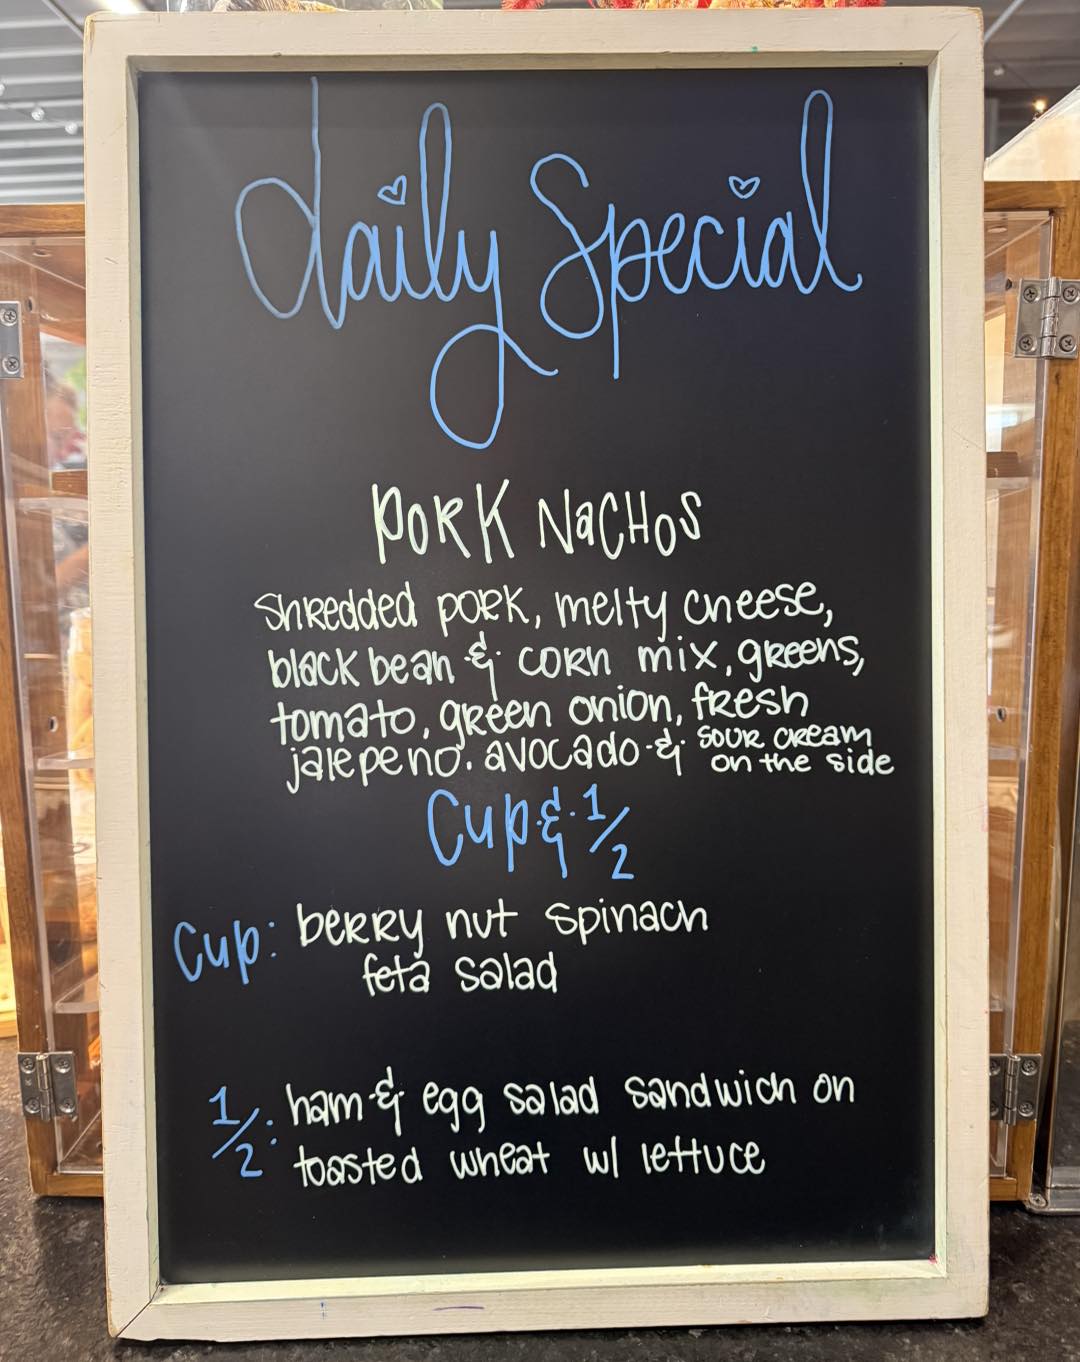 daily Special
PORK NaCHOS
Shredded pork, melty cheese,
black bean & corn mix, greens,
tomato, green onion, fresh
jalepeno. avocado & sour cream
on the side
Cup & 1/2
Cup: berry nut spinach
feta salad
1/2: ham & egg salad sandwich on
toasted wheat w/ lettuce